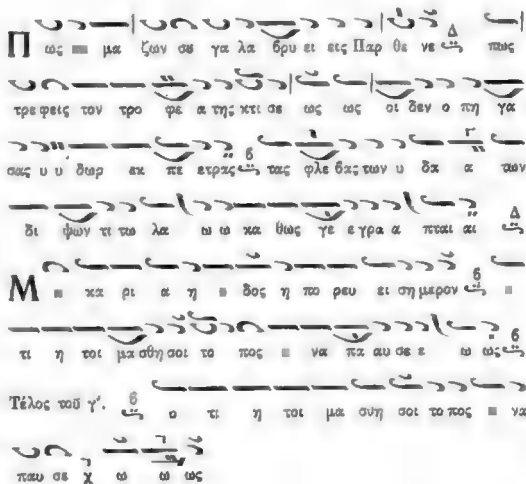 Π ως μα ζων σου γα λα βρυ ει εις Παρ θε νε Δ πως
τρε φεις τον τρο φε α της κτι σε ως ως οι δεν ο πη γα
σας υ υ δωρ εκ πε ετρας β τας φλε βας των υ δα α των
δι ψων τι τω λα ω ω κα θως γε ε γρα α πται αι Δ
Μ κα ρι α η δος η πο ρευ ει ση μερον β
τι η τοι μα σθη σοι το πος να πα αυ σε ε ω ως β
Τέλος τοῦ γ'. β ο τι η τοι μα σθη σοι το πος να
παυ σε χ ω ω ως